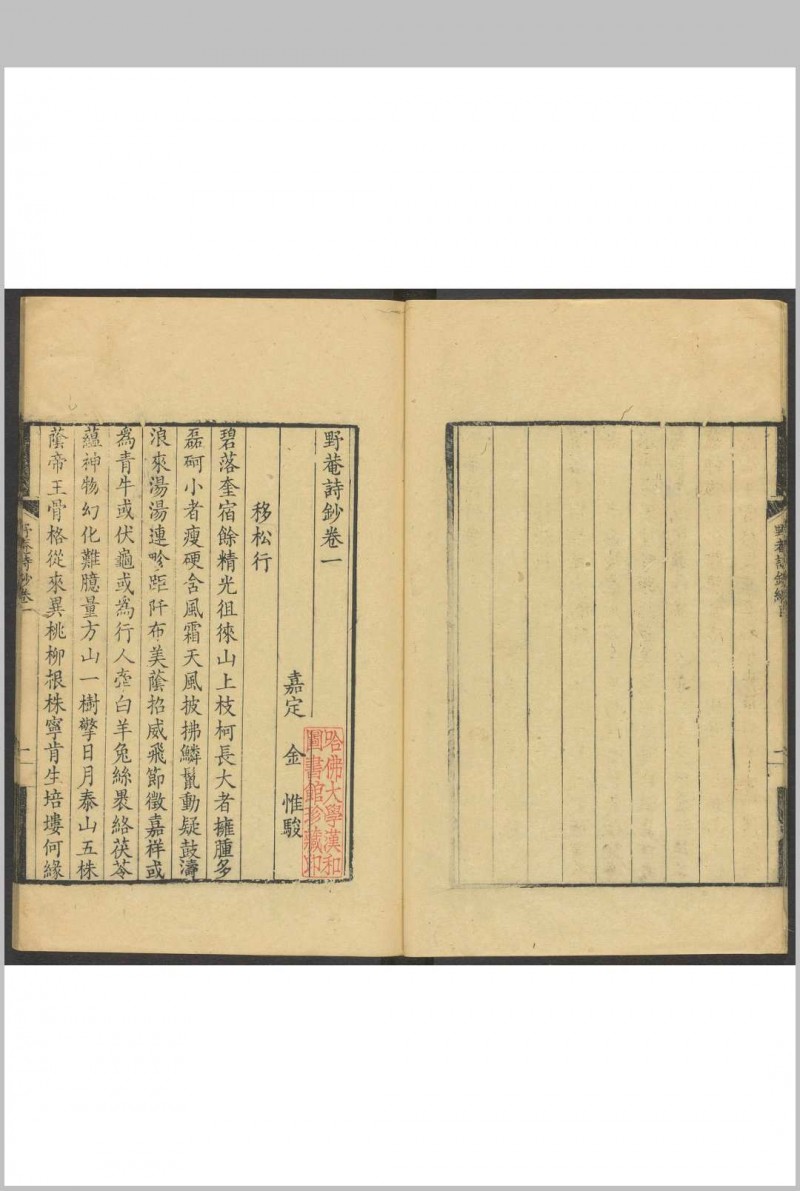 野菴詩鈔卷一
嘉定 金 惟駿
移松行
碧落奎宿餘精光徂徠山上枝柯長大者擁腫多
磊砢小者瘦硬含風霜天風披拂鱗鬣動疑鼓濤
浪來湯湯連畛距阡布美蔭招威飛節徵嘉祥或
爲青牛或伏龜或爲行人牽白羊兔絲褁絡茯苓
蘊神物幻化難臆量方山一樹擎日月泰山五株
蔭帝王骨格從來異桃柳根株寧肯生培塿何緣
哈佛大學漢和
圖書館珍藏印
野菴詩鈔卷一
一
野菴詩鈔總目